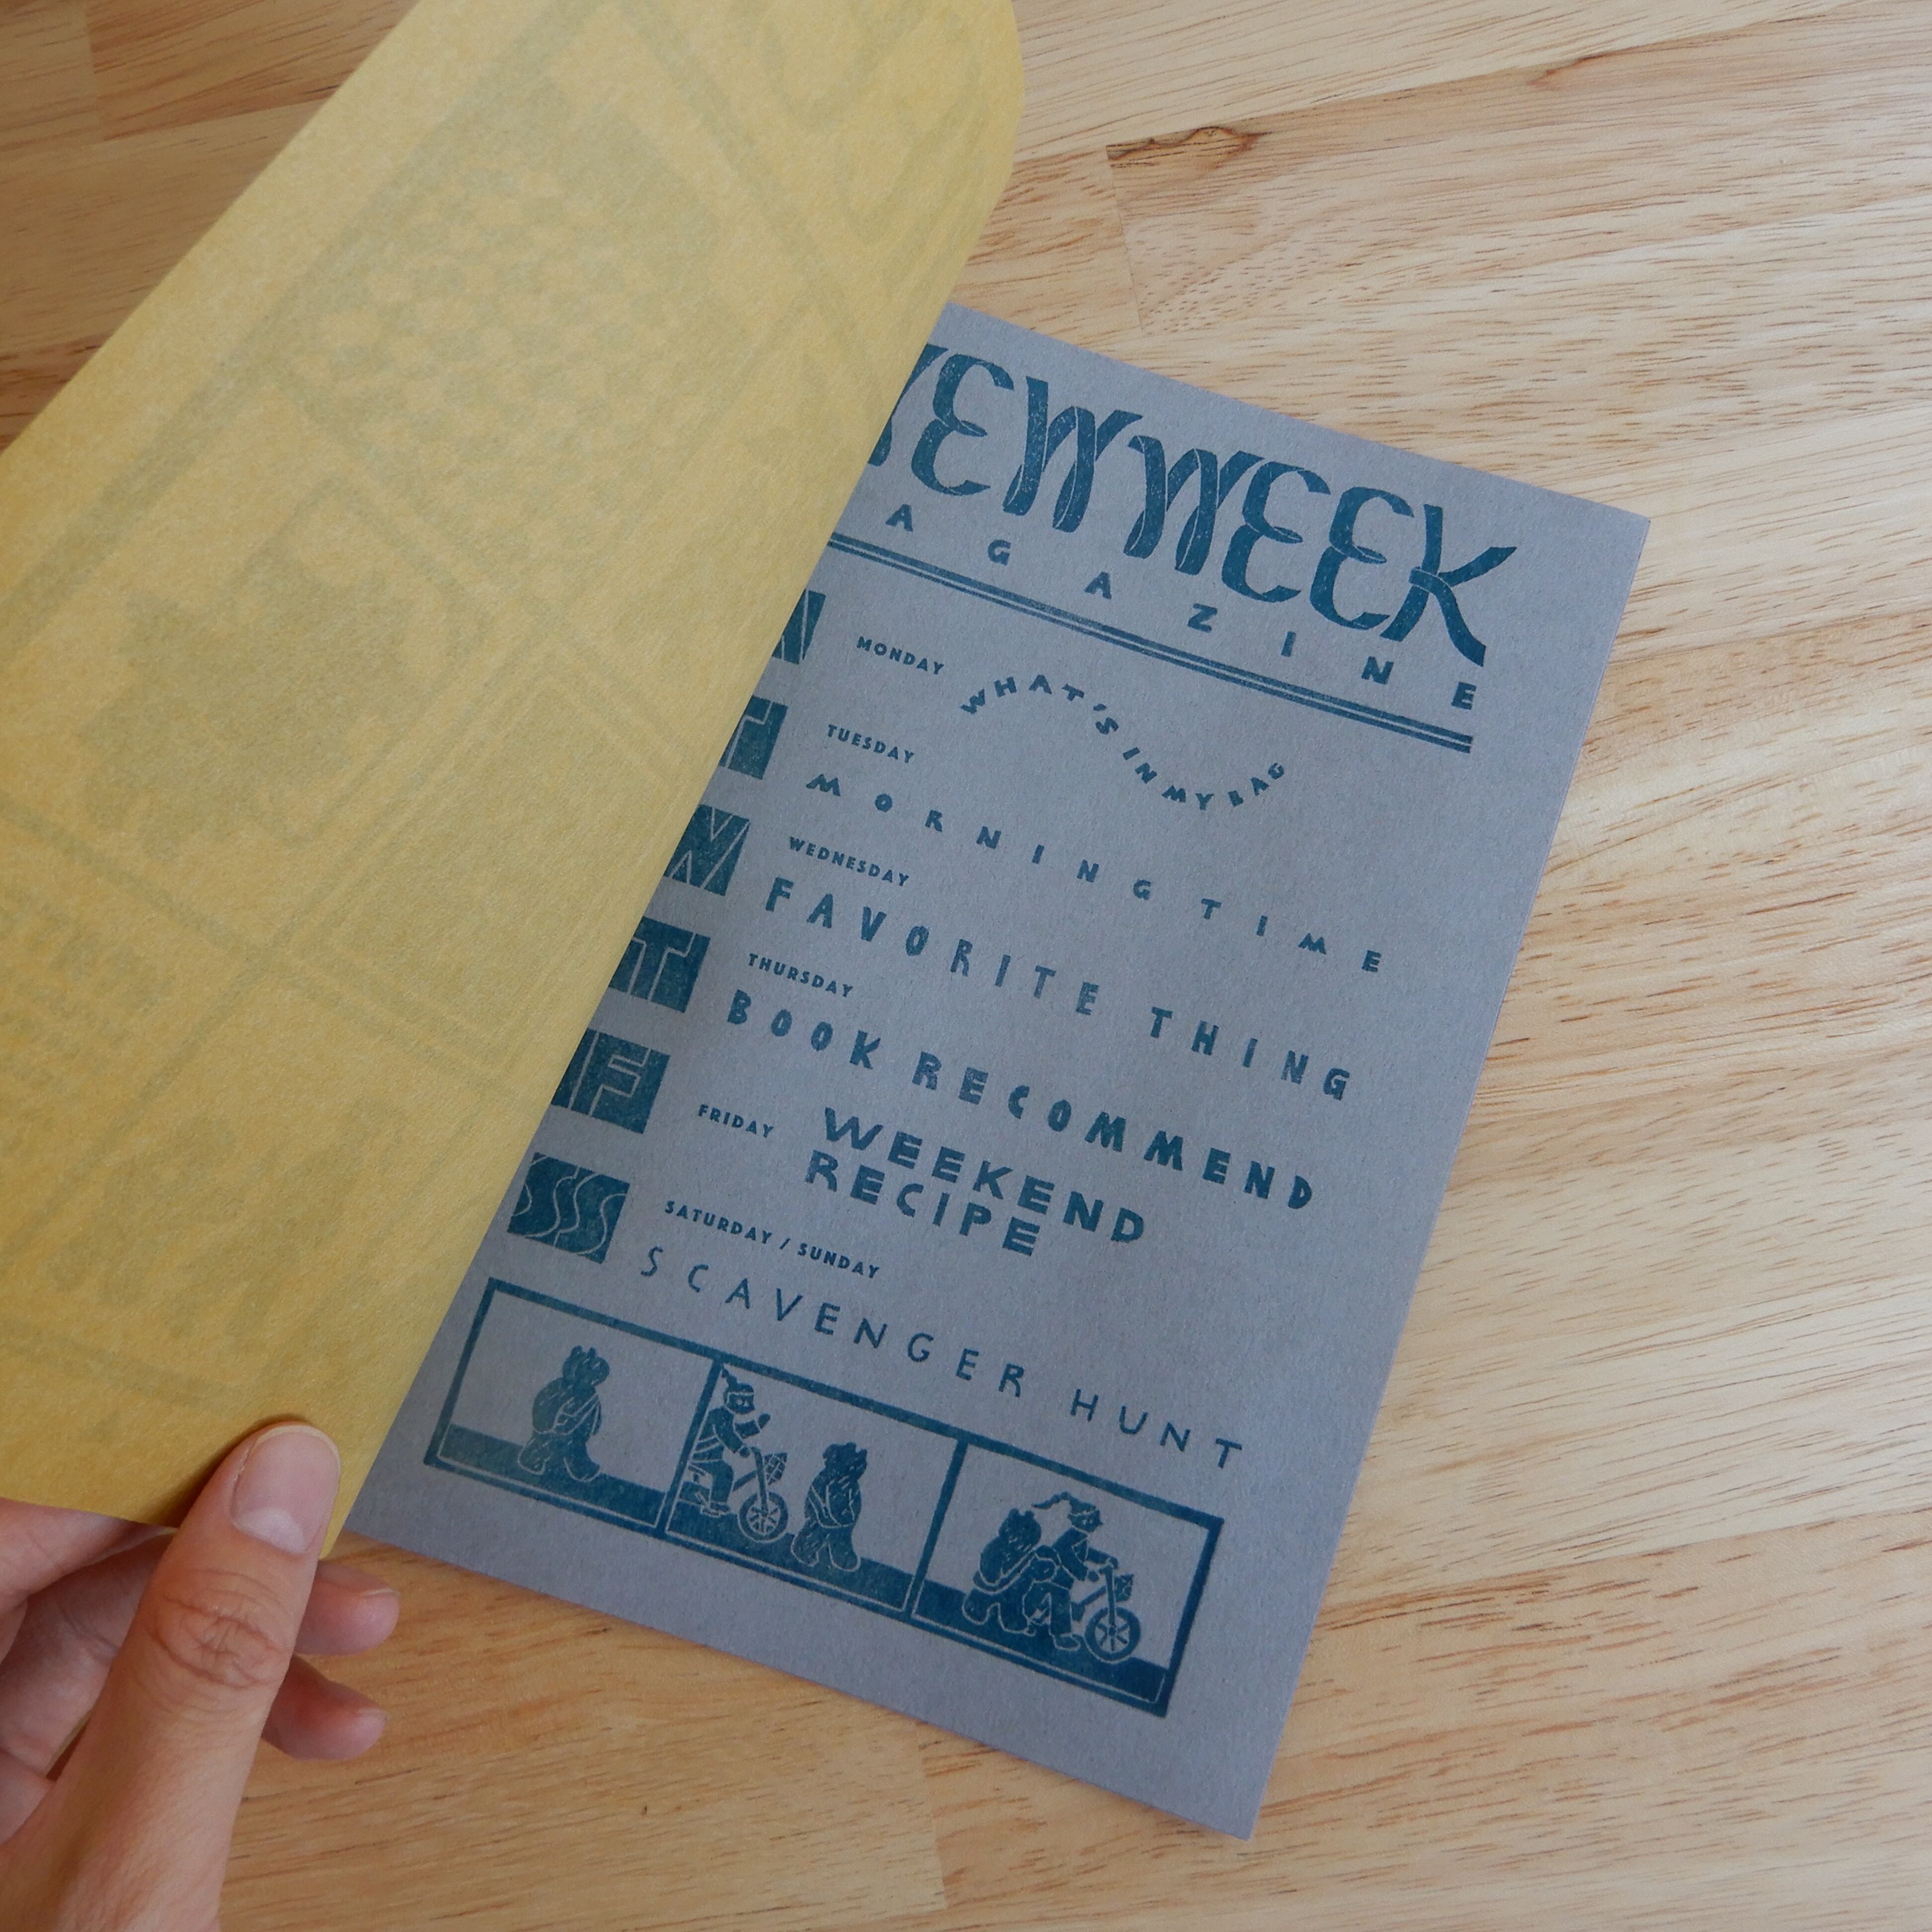 EWWEEK
AGAZINE
MONDAY
WHAT'S IN MY BAG
T
TUESDAY
MORNING TIME
W
WEDNESDAY
FAVORITE THING
T
THURSDAY
BOOK RECOMMEND
F
FRIDAY
WEEKEND
RECIPE
SSS
SATURDAY / SUNDAY
SCAVENGER HUNT